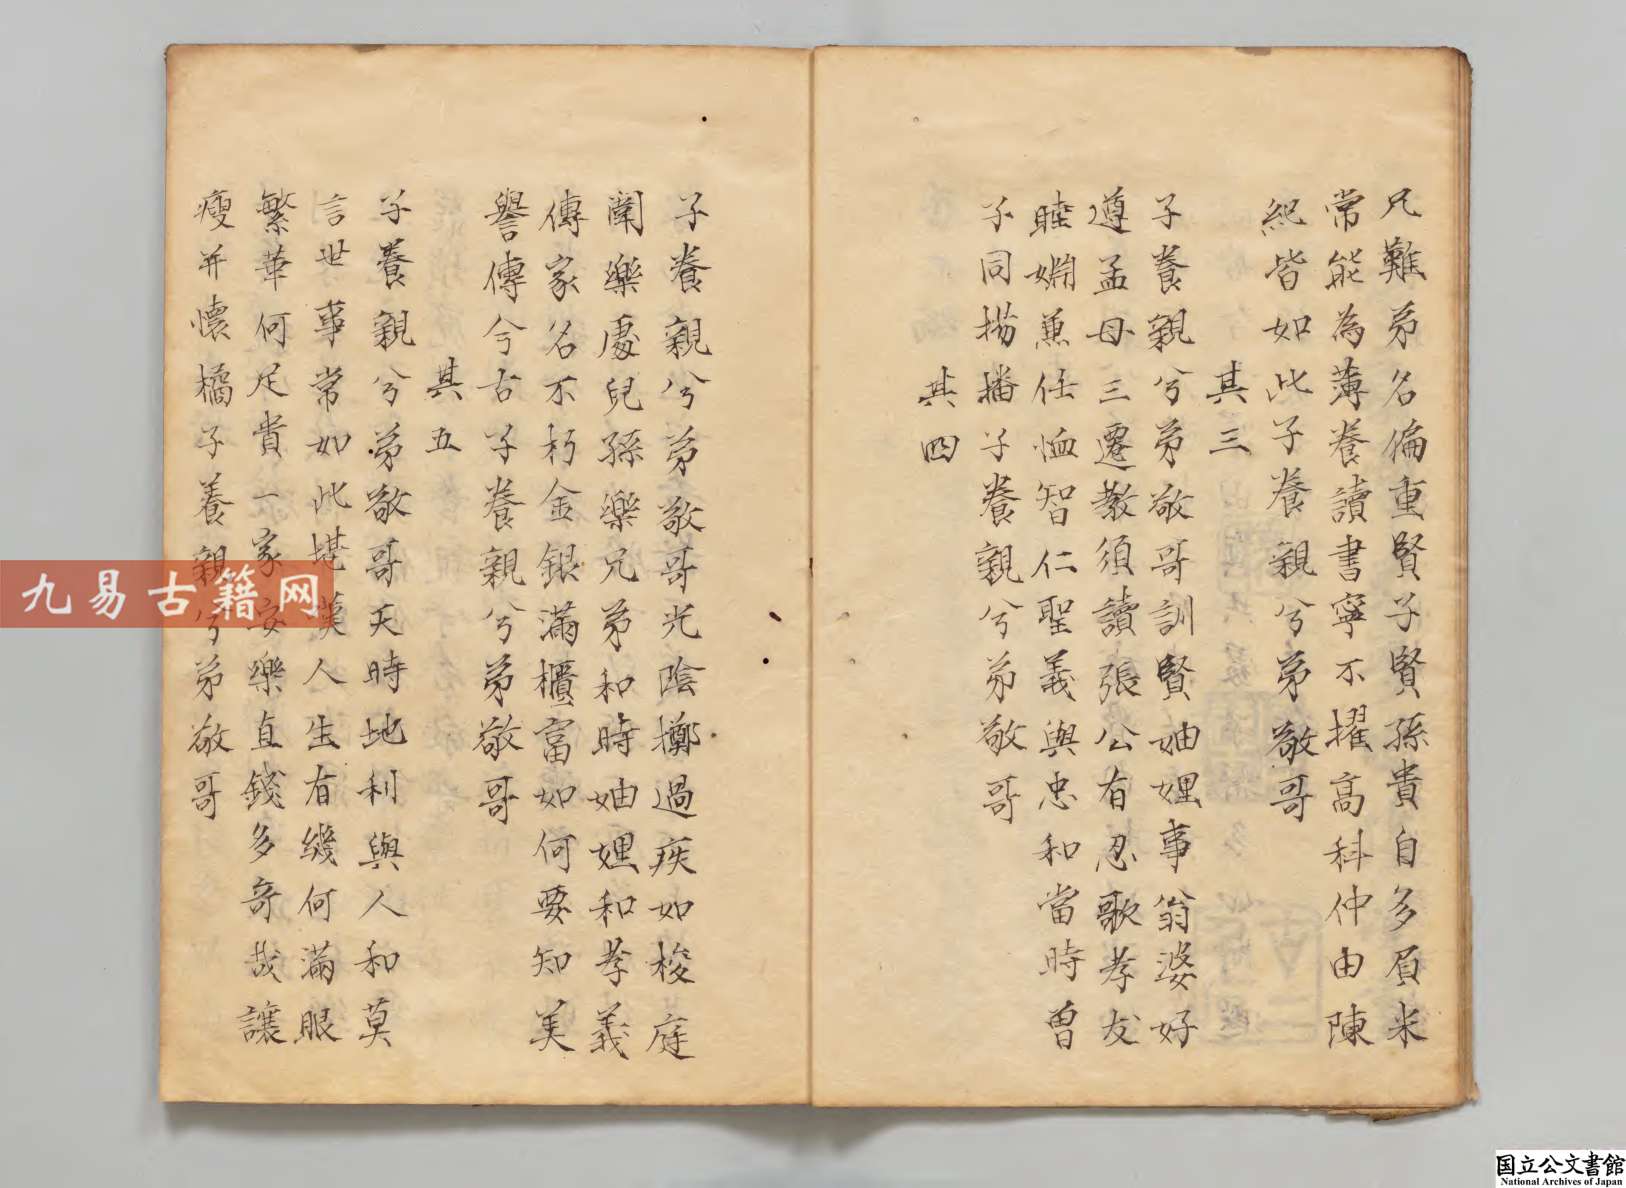 兄難弟名偏重賢子賢孫貴自多眉米
常能為薄養讀書寧不擢高科仲由陳
紀皆如此子養親兮弟敬哥
其三
子養親兮弟敬哥訓賢妯娌事翁婆好
遵孟母三遷教須讀張公有忍歌孝友
睦婣兼任恤智仁聖義與忠和當時曾
子同揚播子養親兮弟敬哥
其四
子養親兮弟敬哥光陰擲過疾如梭庭
闈樂處兒孫樂兄弟和時妯娌和孝義
傳家名不朽金銀滿櫃富如何要知美
譽傳今古子養親兮弟敬哥
其五
子養親兮弟敬哥天時地利與人和莫
言世事常如此堪漢人生有幾何滿眼
繁華何足貴一家安樂直錢多奇哉讓
瘦并懷橘子養親兮弟敬哥
九易古籍网
国立公文書館
National Archives of Japan